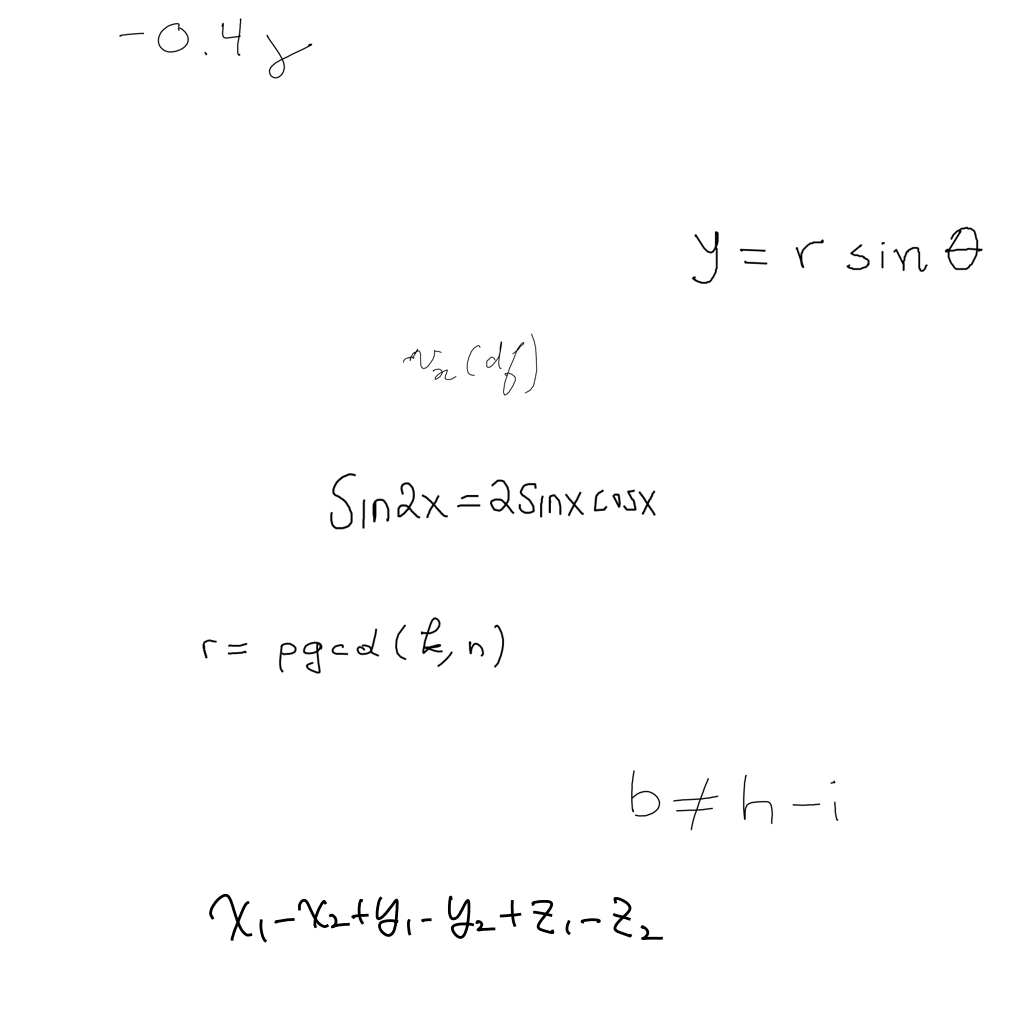 -0.4γ
y = r sin θ
v_x(df)
Sin2x = 2Sinx cosx
r = pgcd(k, n)
b ≠ h - i
x₁ - x₂ + y₁ - y₂ + z₁ - z₂